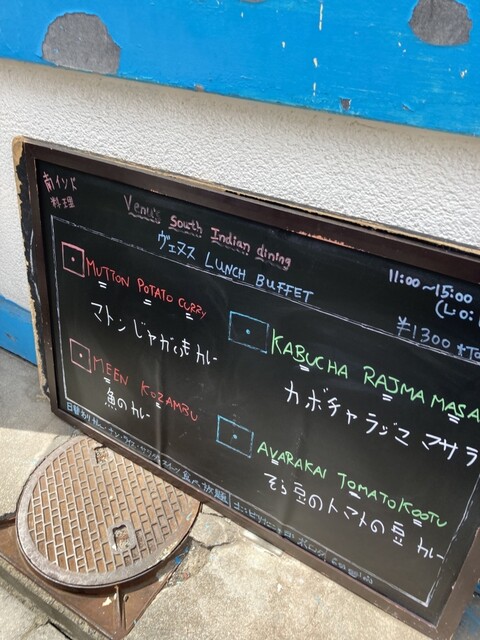 南インド
料理
Venu's South Indian dining
ヴェヌス LUNCH BUFFET
11:00~15:00
(L.O:
¥1300
MUTTON POTATO CURRY
マトンじゃがいもカレー
KABUCHA RAJMA MASA
カボチャラジママサラ
MEEN KOZAMBU
魚のカレー
AVARAKAI TOMATO KOOTU
そら豆のトマトの豆カレー
日替わりカレー・ナン・ライス・サラダ・スイーツ 食べ放題